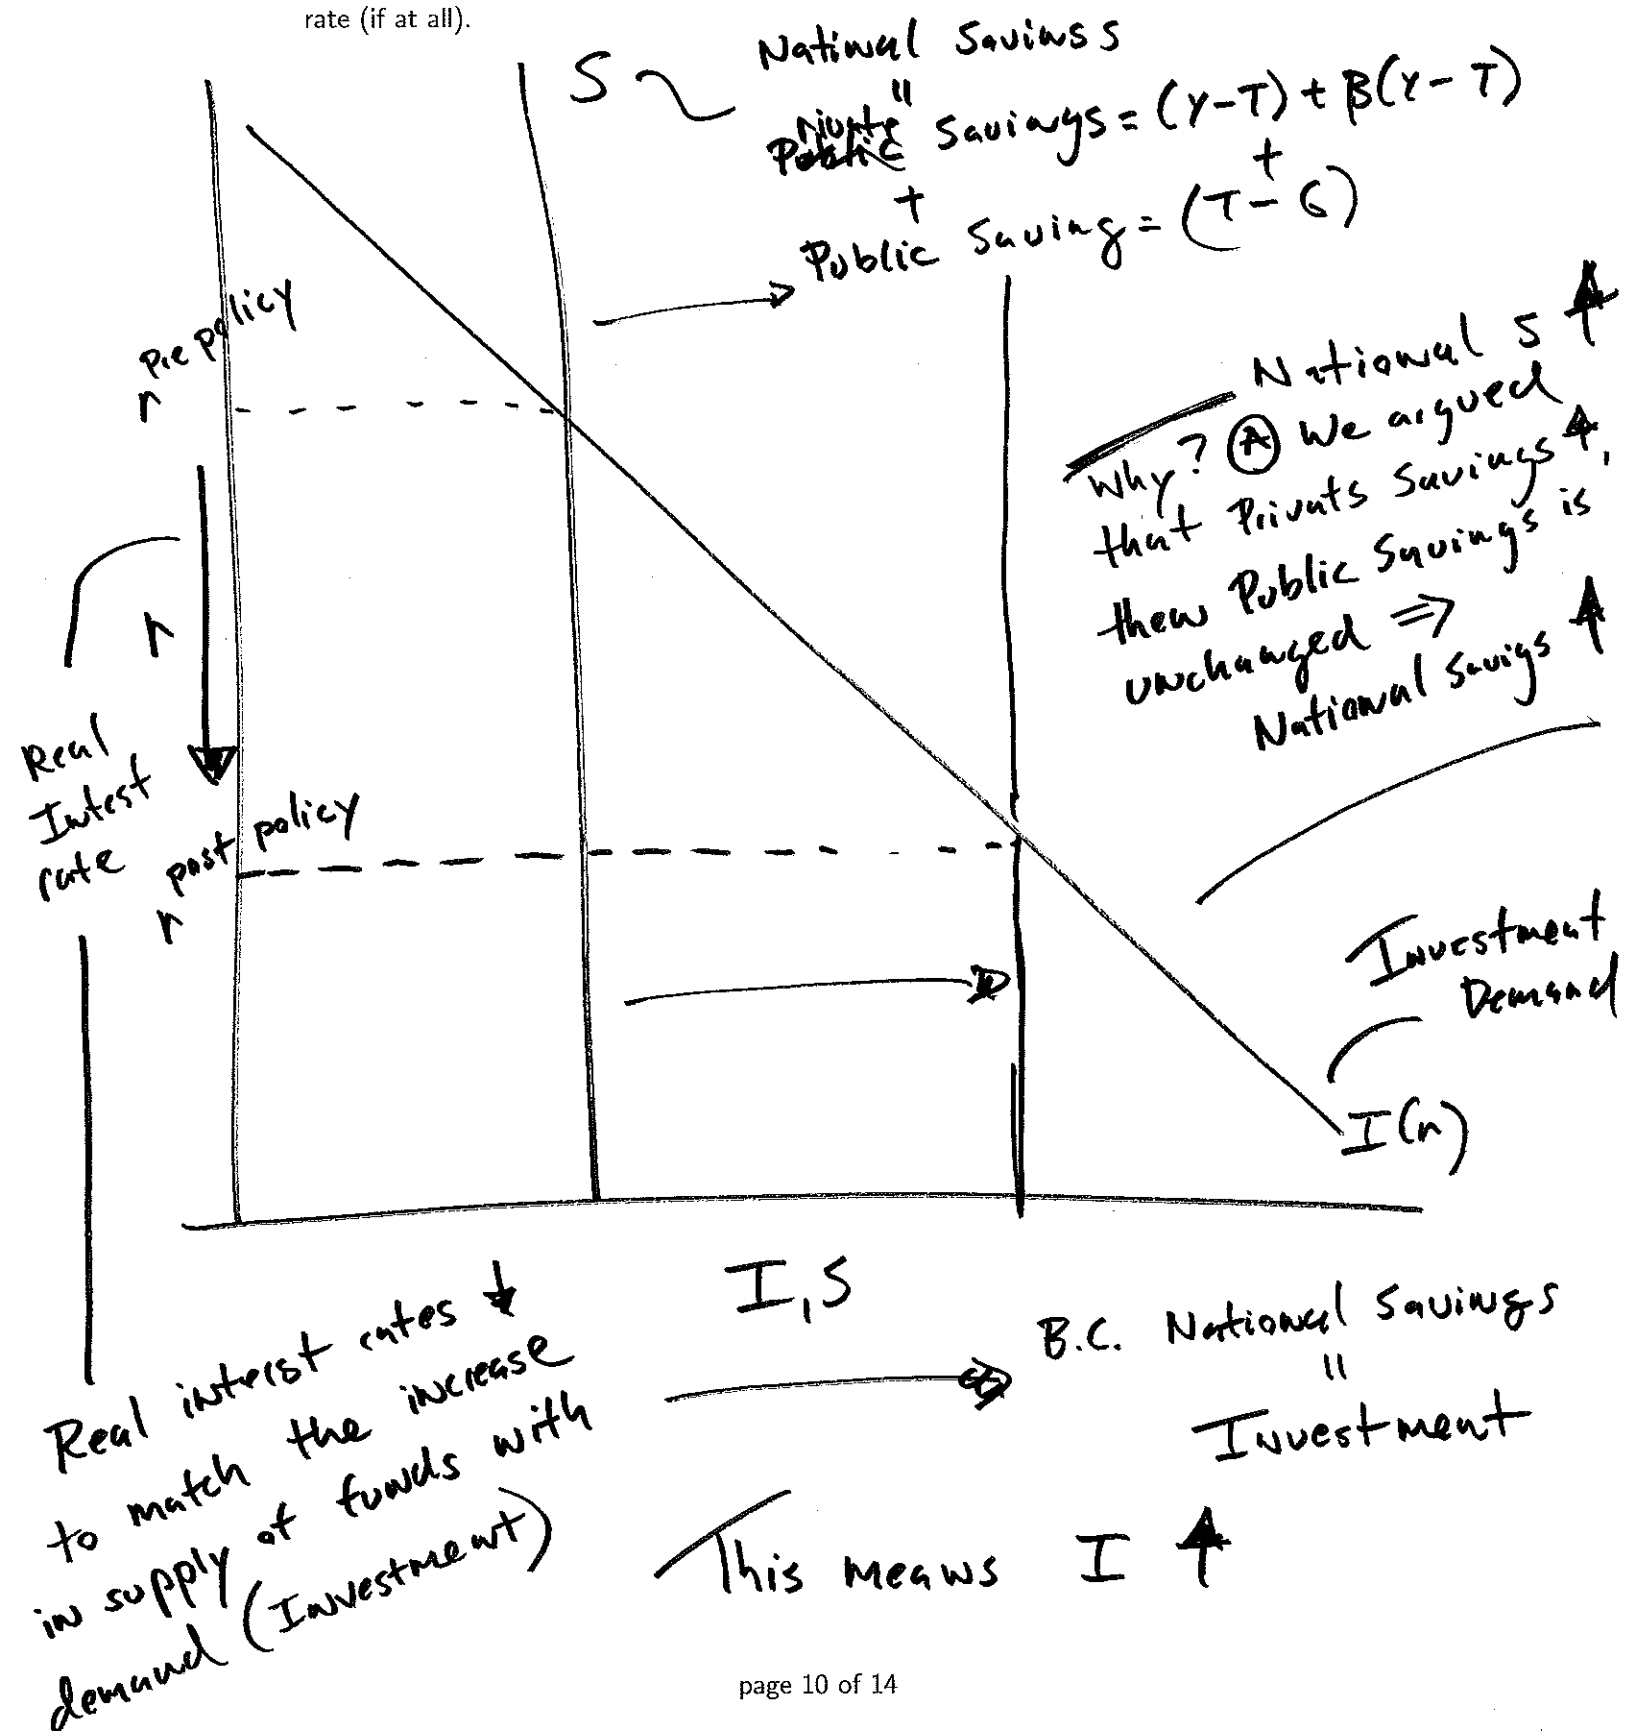 rate (if at all).
National Savings
S
"
Private
Public Savings = (Y-T) + B(Y-T)
+
+
Public Saving = (T-G)
r pre policy
National S ↑
Why? Ⓐ We argued
that Privats Savings ↑,
then Public Savings is
unchanged ⇒
National Savigs ↑
r
Real
Intest
rate
r post policy
Investment
Demand
I(r)
I, S
Real interst rates ↓
to match the increase
in supply of funds with
demand (Investment)
B.C. National Savings
"
Investment
This means I ↑
page 10 of 14